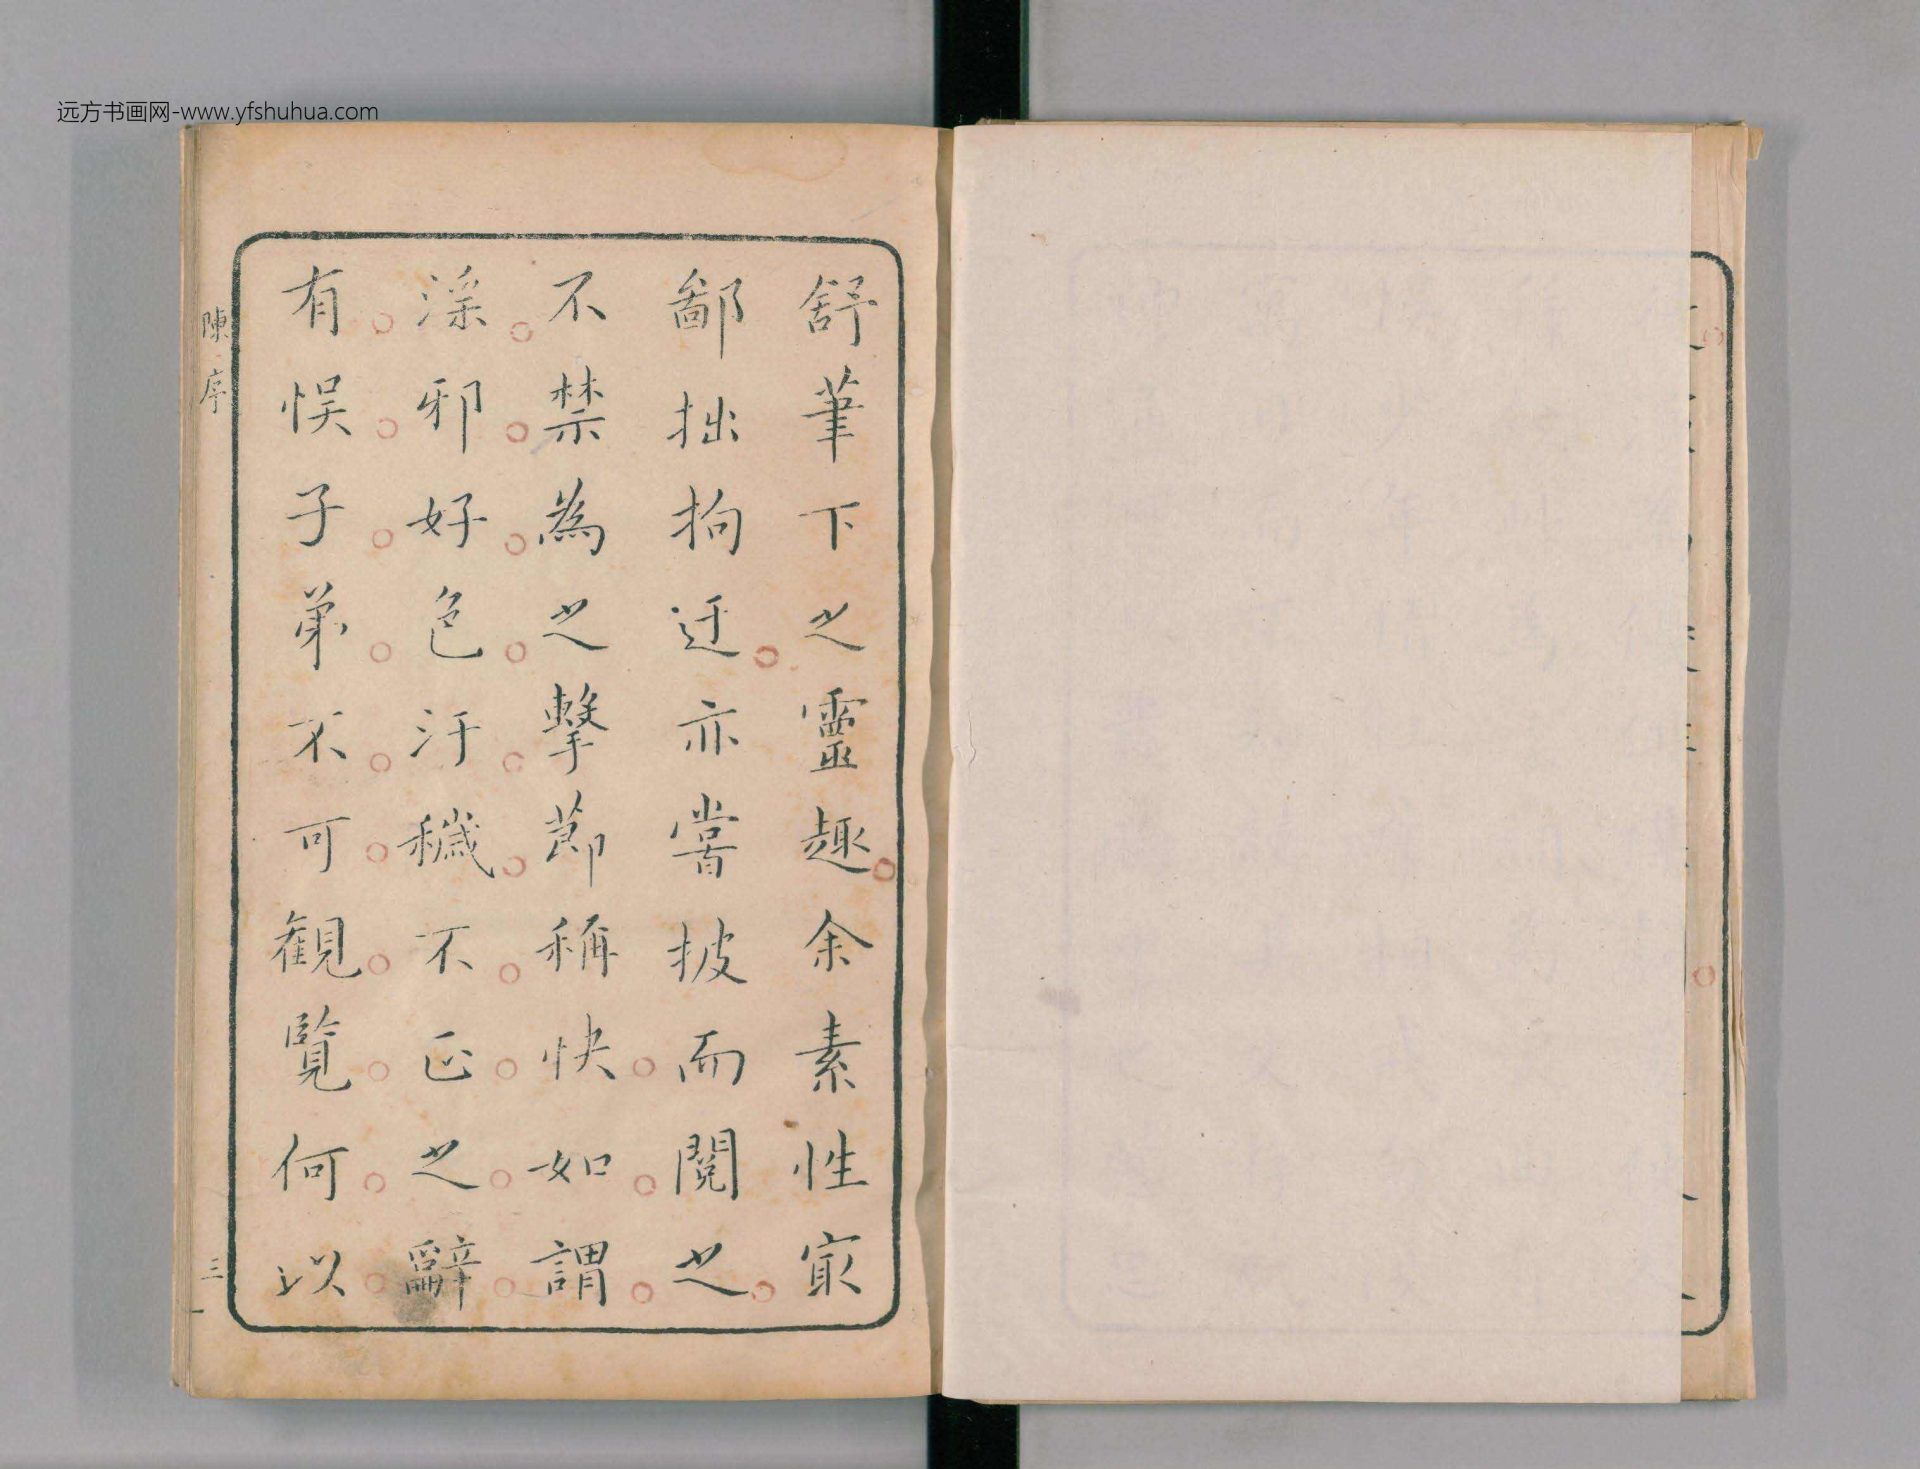 远方书画网-www.yfshuhua.com
舒筆下之靈趣余素性㝡
鄙拙拘迂亦嘗披而閱之
不禁為之擊節稱快如謂
淫邪好色汙穢不正之辭
有悮子弟不可觀覽何以
陳序
三